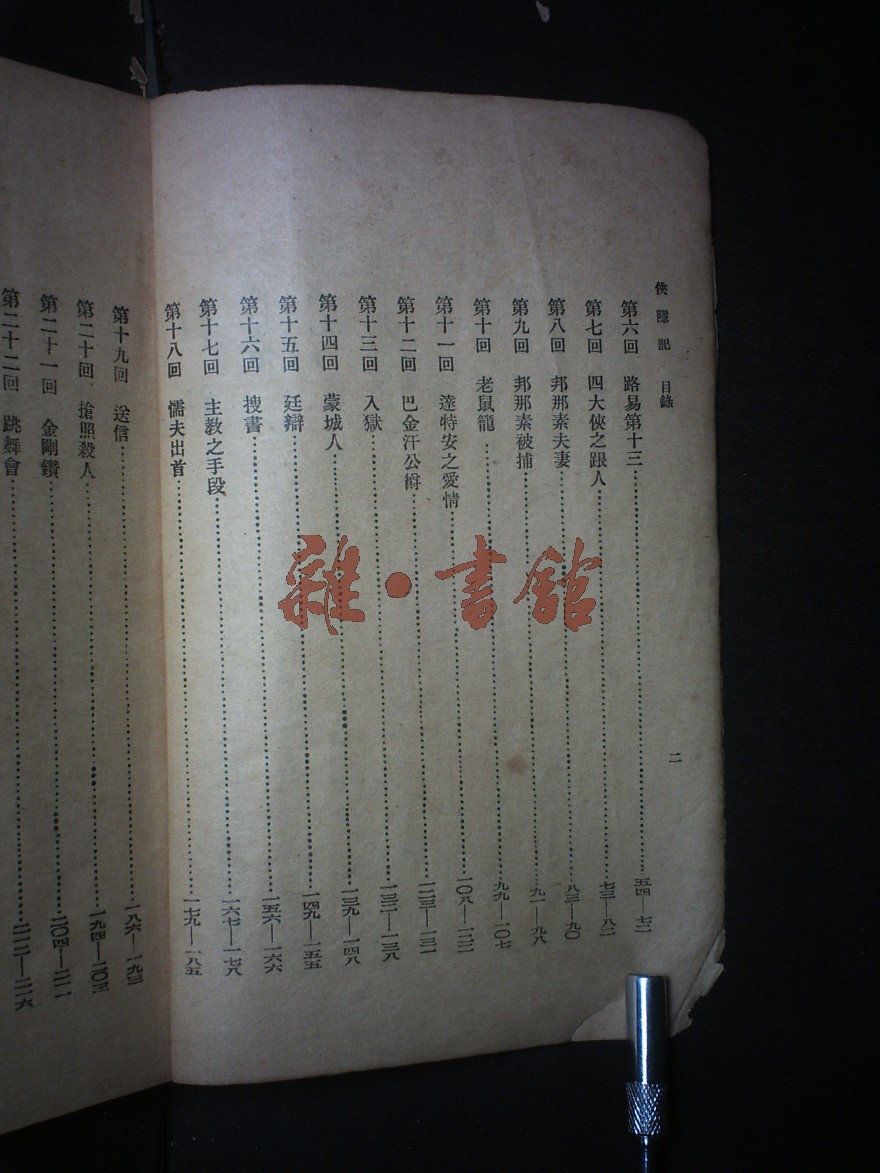 俠隱記 目錄
二
第六回 路易第十三 五四—七二
第七回 四大俠之跟人 七三—八二
第八回 邦那素夫妻 八三—九〇
第九回 邦那素被捕 九一—九八
第十回 老鼠籠 九九—一〇七
第十一回 達特安之愛情 一〇八—一二二
第十二回 巴金汗公爵 一二三—一三一
第十三回 入獄 一三二—一三八
第十四回 蒙城人 一三九—一四八
第十五回 廷辯 一四九—一五五
第十六回 搜書 一五六—一六六
第十七回 主教之手段 一六七—一七八
第十八回 懦夫出首 一七九—一八五
第十九回 送信 一八六—一九三
第二十回 搶照殺人 一九四—二〇三
第二十一回 金剛鑽 二〇四—二一一
第二十二回 跳舞會 二一二—二一六
雜·書館